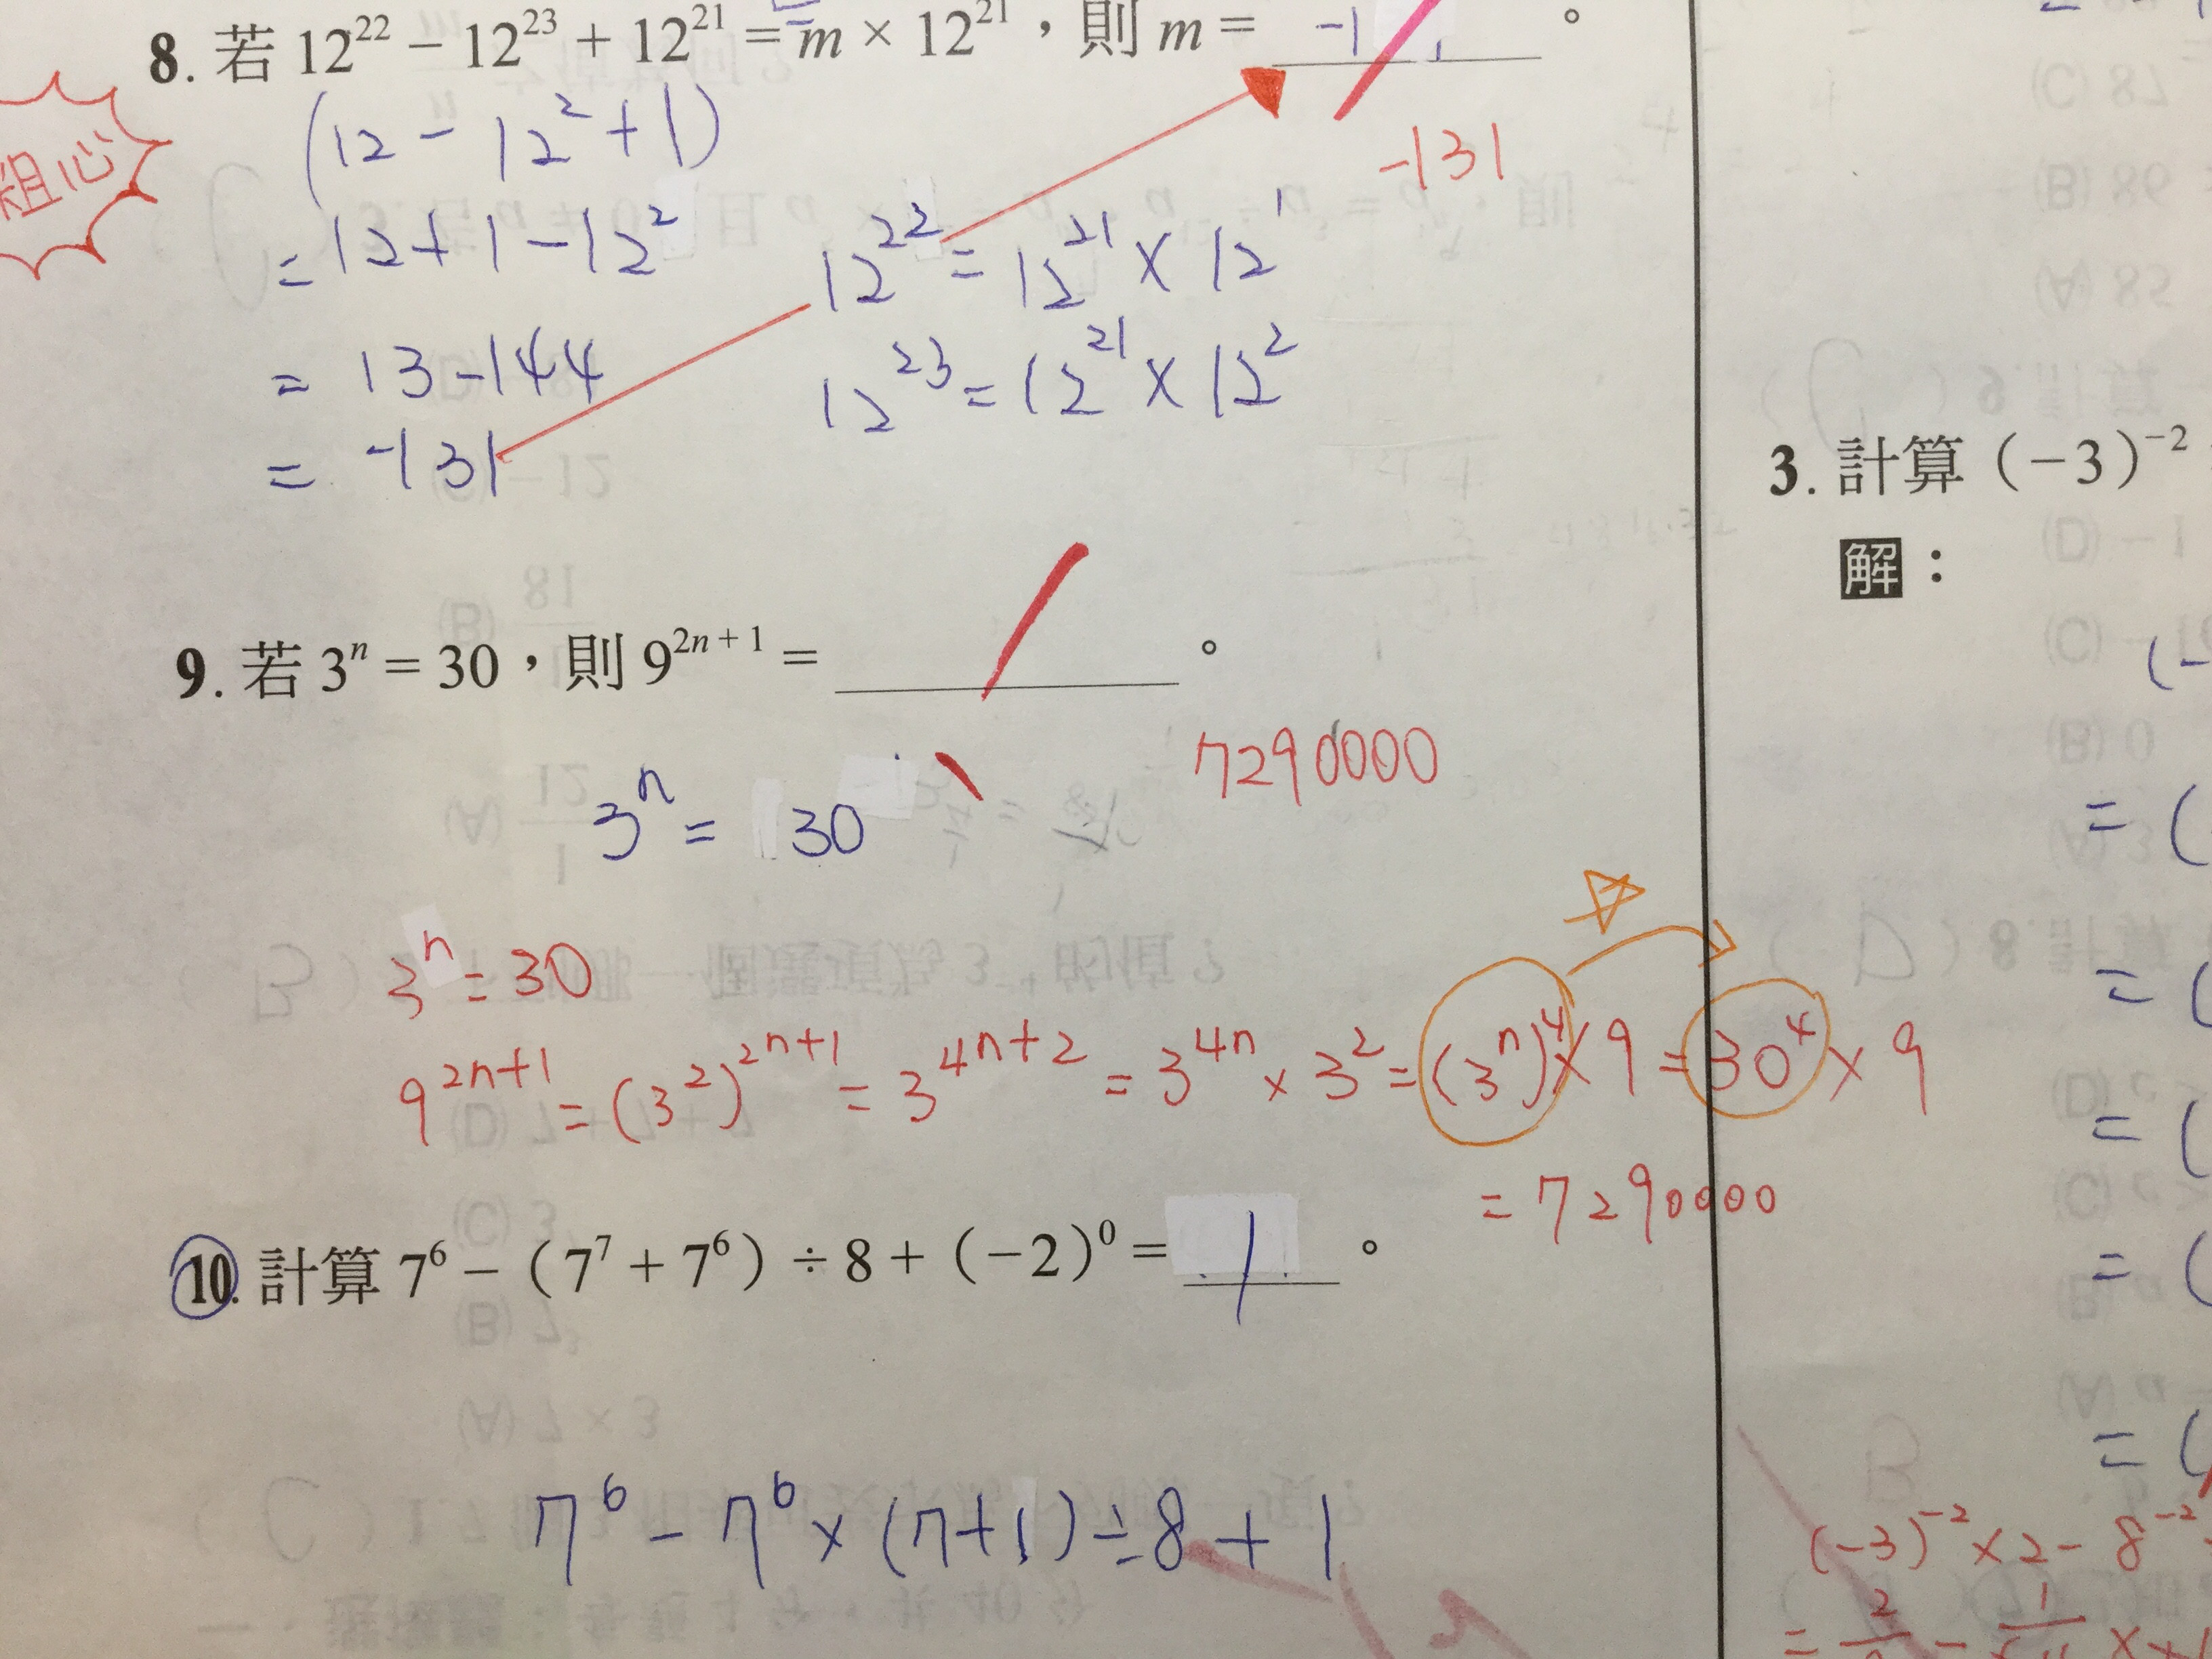 8. 若 12²² − 12²³ + 12²¹ = m × 12²¹，則 m = -1 。
-131
粗心
(12 - 12² + 1)
= 12 + 1 - 12²
= 13 - 144
= -131
12²² = 12²¹ × 12¹
12²³ = 12²¹ × 12²
9. 若 3ⁿ = 30，則 9²ⁿ⁺¹ = 。
7290000
3ⁿ = 30
3ⁿ = 30
9²ⁿ⁺¹ = (3²)²ⁿ⁺¹ = 3⁴ⁿ⁺² = 3⁴ⁿ × 3² = (3ⁿ)⁴ × 9 = 30⁴ × 9
= 7290000
10. 計算 7⁶ − (7⁷ + 7⁶) ÷ 8 + (−2)⁰ = 1 。
7⁶ - 7⁶ × (7+1) ÷ 8 + 1
3. 計算 (−3)⁻²
解：
(-
= (
= (
= (
= (
= (
(-3)⁻² × 2 - 8⁻²